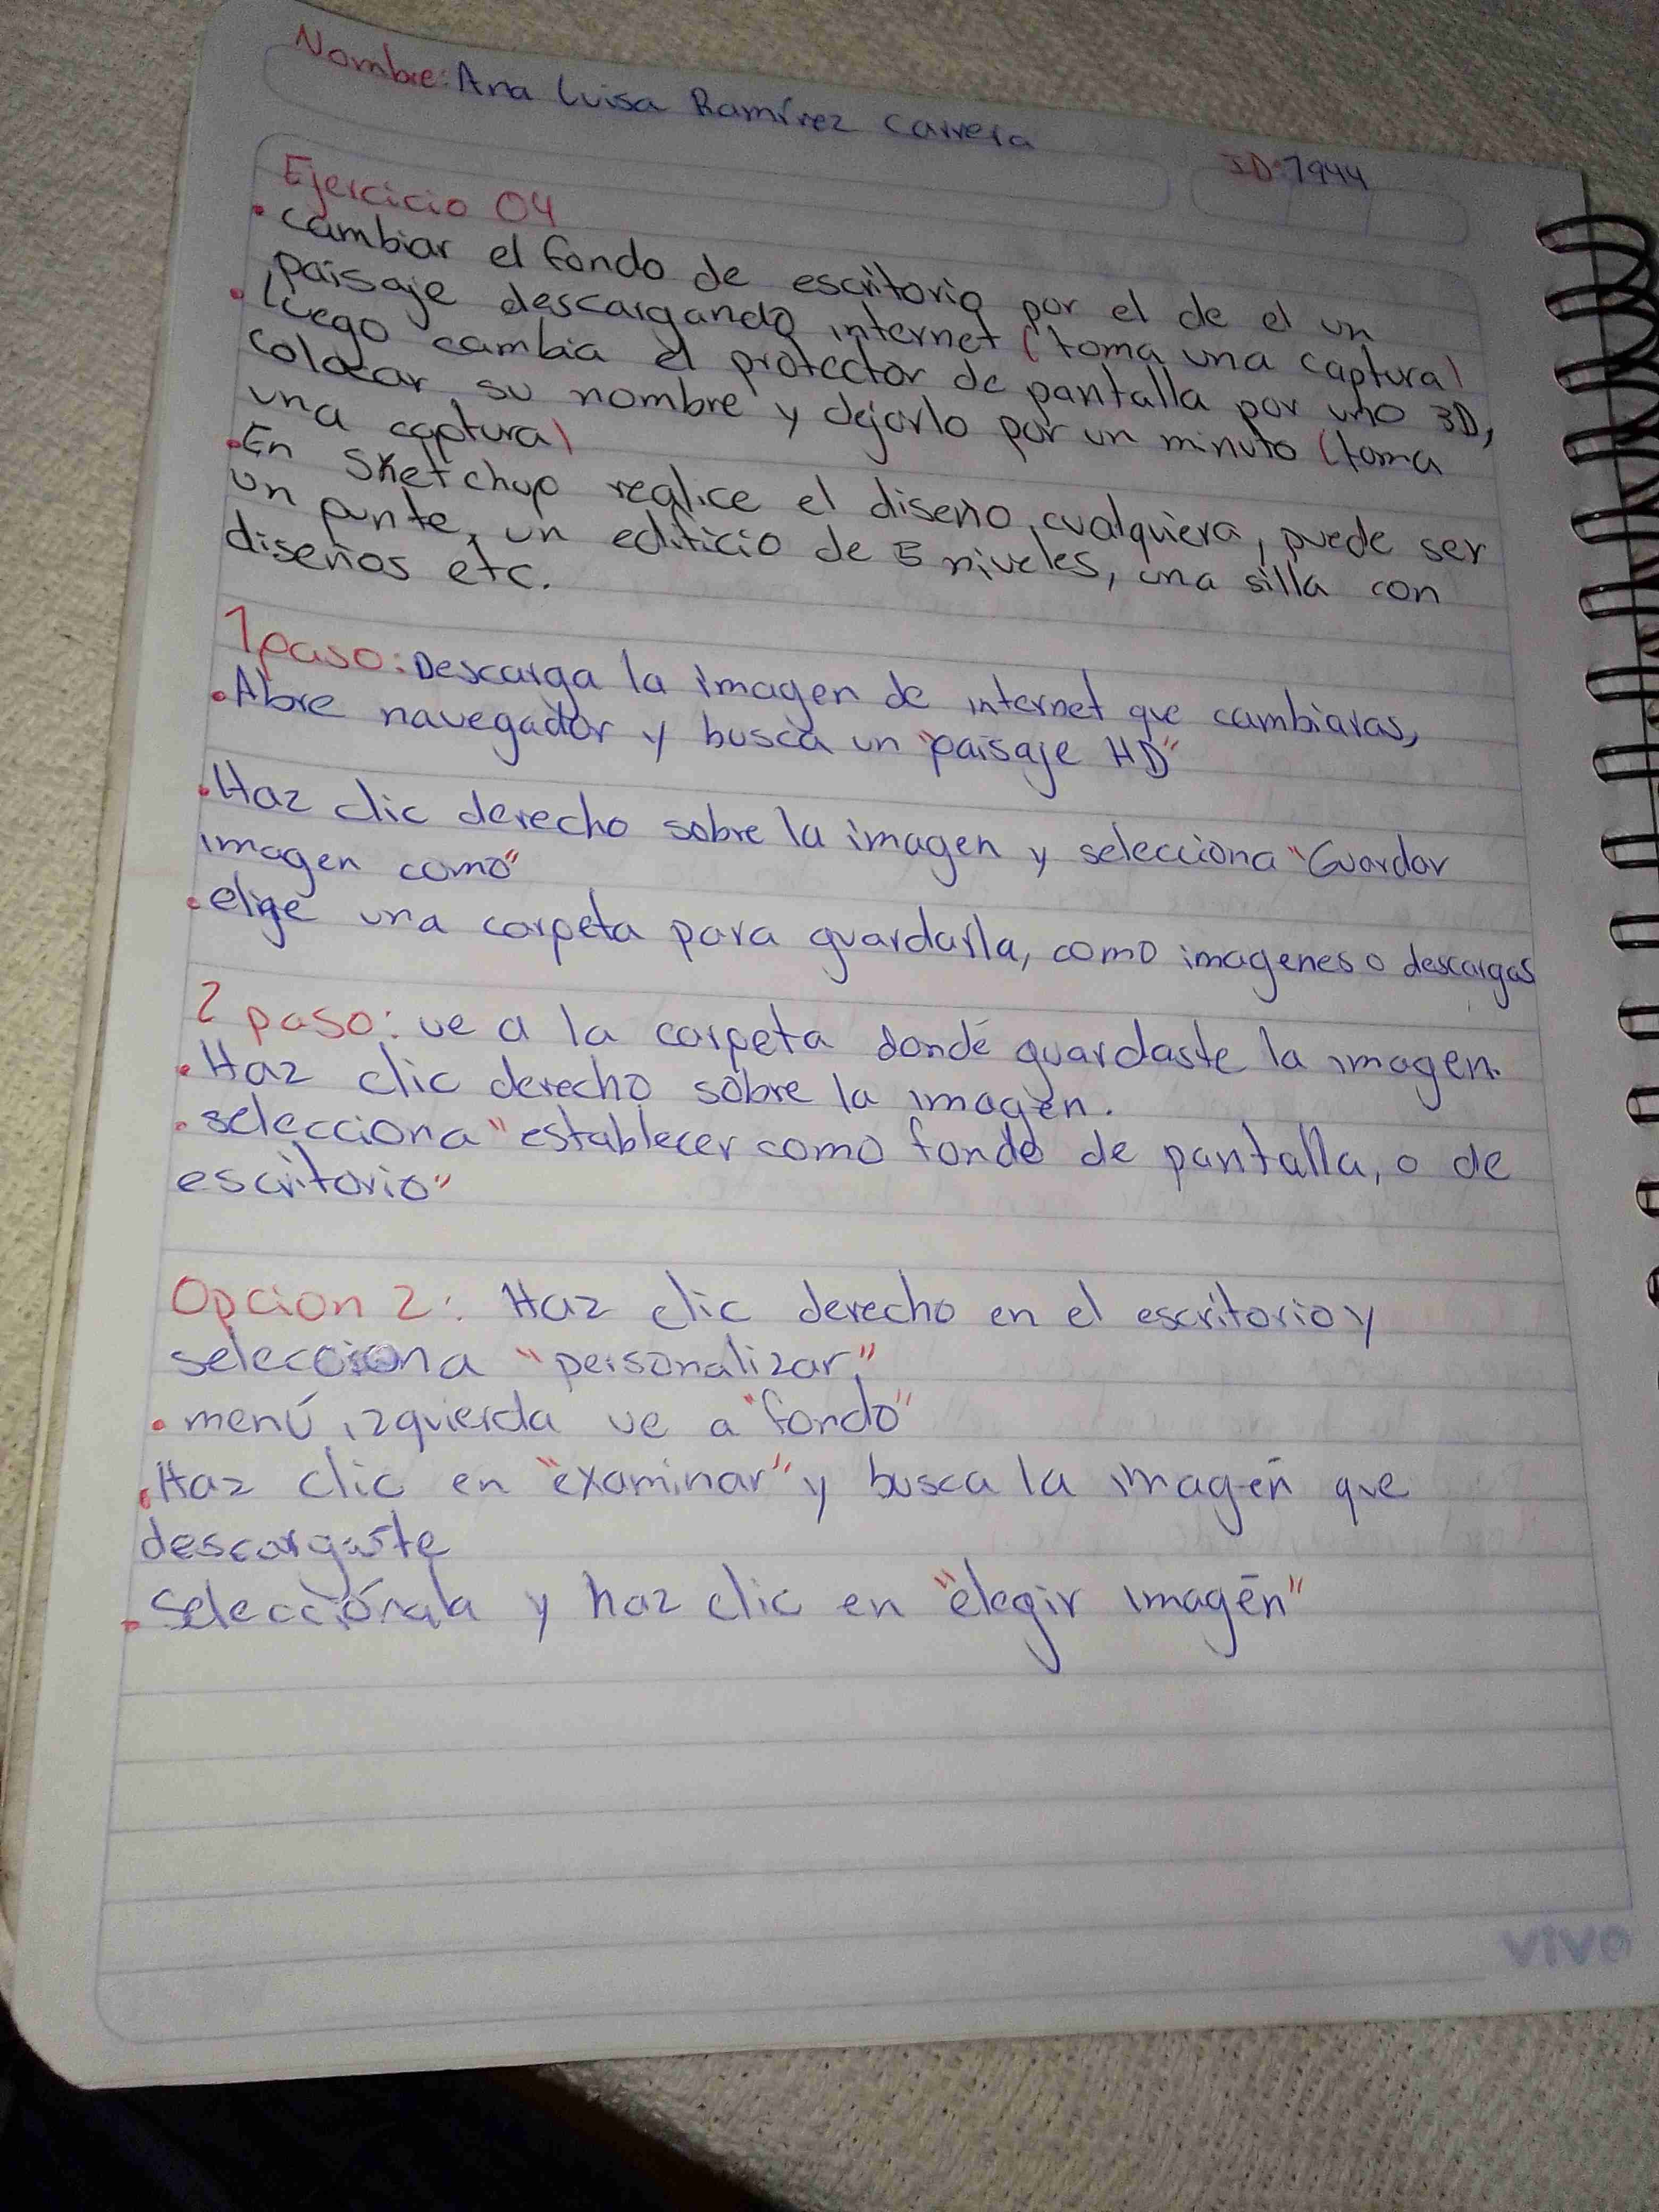 Nombre: Ana Luisa Ramírez Carrera
ID: 7944
Ejercicio 04
• cambiar el fondo de escritorio por el de el un
paisaje descargando internet (toma una captura)
• luego cambia el protector de pantalla por uno 3D,
colocar su nombre y dejarlo por un minuto (toma
una captura)
• En Sketchup realice el diseño, cualquiera, puede ser
un punte, un edificio de 5 niveles, una silla con
diseños etc.
1 paso: Descarga la imagen de internet que cambiaras,
• Abre navegador y busca un "paisaje HD"
• Haz clic derecho sobre la imagen y selecciona "Guardar
imagen como"
• elige una carpeta para guardarla, como imagenes o descargas
2 paso: ve a la carpeta donde guardaste la imagen.
• Haz clic derecho sobre la imagen.
• selecciona "establecer como fondo de pantalla, o de
escritorio"
Opcion 2: Haz clic derecho en el escritorio y
selecciona "personalizar"
• menú izquierda ve a "fondo"
• Haz clic en "examinar" y busca la imagen que
descargaste
• Selecciónala y haz clic en "elegir imagen"
vivo